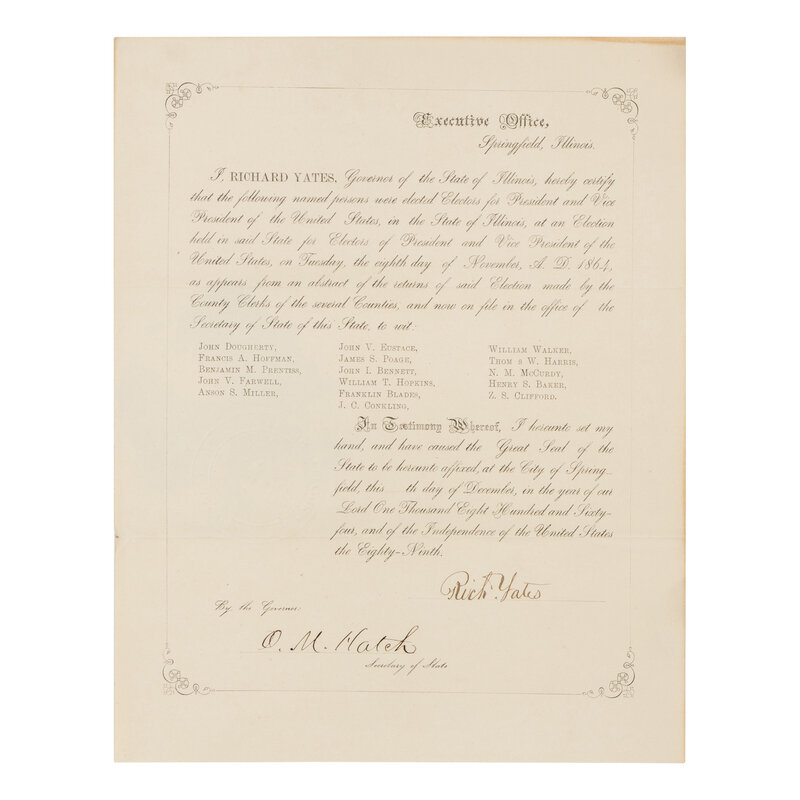 Executive Office,
Springfield, Illinois.
I, RICHARD YATES, Governor of the State of Illinois, hereby certify
that the following named persons were elected Electors for President and Vice
President of the United States, in the State of Illinois, at an Election
held in said State for Electors of President and Vice President of the
United States, on Tuesday, the eighth day of November, A. D. 1864,
as appears from an abstract of the returns of said Election made by the
County Clerks of the several Counties, and now on file in the office of the
Secretary of State of this State, to wit:
John Dougherty,
Francis A. Hoffman,
Benjamin M. Prentiss,
John V. Farwell,
Anson S. Miller,
John V. Eustace,
James S. Poage,
John I. Bennett,
William T. Hopkins,
Franklin Blades,
J. C. Conkling,
William Walker,
Thom s W. Harris,
N. M. McCurdy,
Henry S. Baker,
Z. S. Clifford.
In Testimony Whereof, I hereunto set my
hand, and have caused the Great Seal of the
State to be hereunto affixed, at the City of Spring-
field, this th day of December, in the year of our
Lord One Thousand Eight Hundred and Sixty-
four, and of the Independence of the United States
the Eighty-Ninth.
Richd. Yates
By the Governor:
O. M. Hatch
Secretary of State